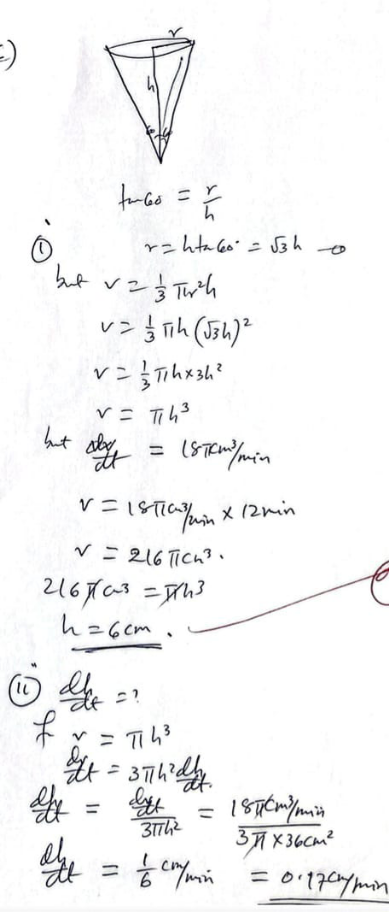 c)
r
h
60 60
tan60 = r/h
(i)
r = h tan60° = √3 h —①
but v = 1/3 πr²h
v = 1/3 πh (√3h)²
v = 1/3 πh × 3h²
v = πh³
but dv/dt = 18πcm³/min
v = 18πcm³/min × 12min
v = 216πcm³.
216πcm³ = πh³
h = 6cm.
(ii) dh/dt = ?
f v = πh³
dv/dt = 3πh² dh/dt.
dh/dt = dv/dt / 3πh² = 18πcm³/min / 3π × 36cm²
dh/dt = 1/6 cm/min = 0.17cm/min